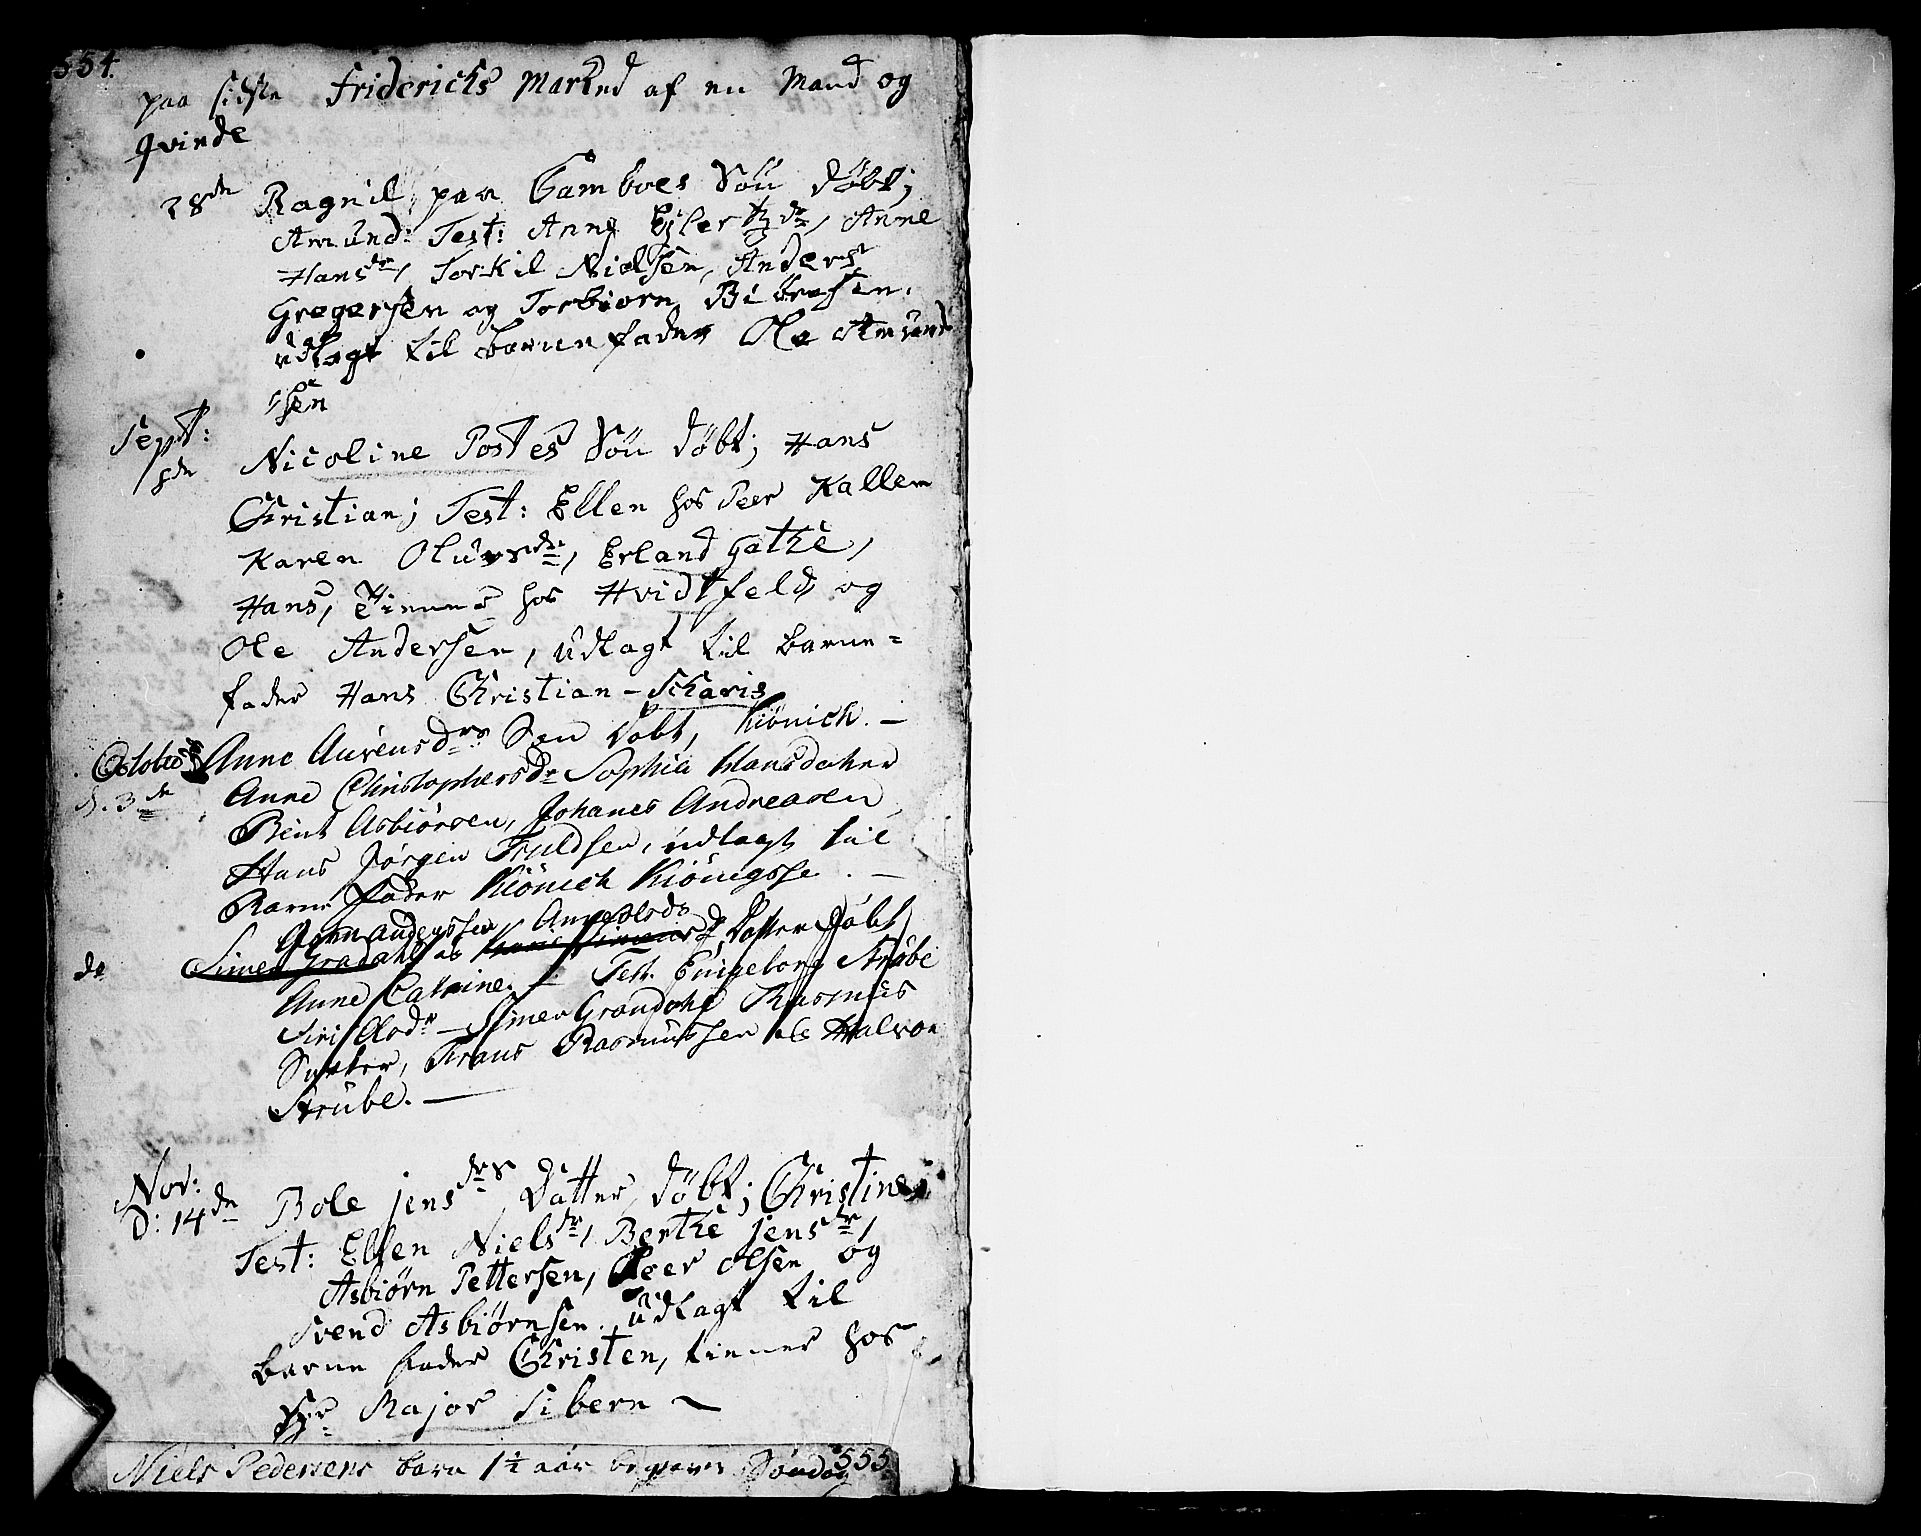 554.
paa sidste Friderichs Marked af en Mand og
Qvinde
28de Ragnil paa Gamboes Søn døbt;
Amund: Test: Anne Ejlertzdr, Anne
Hansdr, Torkil Nielsen, Anders
Gregersen og Torbiørn Bibresen.
udlagt til barnefader Ole Amund
sen
Sept:
8de Nicoline Postes Søn døbt; Hans
Christian; Test: Ellen hos Peer Kallem
Karen Olufsdr, Erland Gathe,
Hans, tienner hos Hvidtfeld, og
Ole Andersen, udlagt til barne=
fader Hans Christian - Scharis
October Anne Aurensdrs Søn døbt, Kiönich. -
d. 3de Anne Christophersdr Sophia Hansdatter
Bent Asbiørsen, Johanes Andreasen
Hans Jørgen Truldsen, udlagt til
Barne Fader Kiönich Kiönigsse . -
Anne Olsds
do Simen Grødahl datter døbt
Anne Catrine. - Test. Engeborg Strübe
Siri Olsdr - Simen Grøndahl Rasmus
Frans Rasmussen Halvor
Strübe. -
Nov:
d: 14de Bole Jensdrs Datter døbt; Christine;
Test: Ellen Nielsdr, Berthe Jensdr,
Asbiørn Pettersen, Peer Olsen og
Svend Asbiørnsen. udlagt til
barne fader Christen, tienner hos
Hr Major Sibern ~
Niels Pedersens barn 1 1/4 aar begraven Søndag 555.